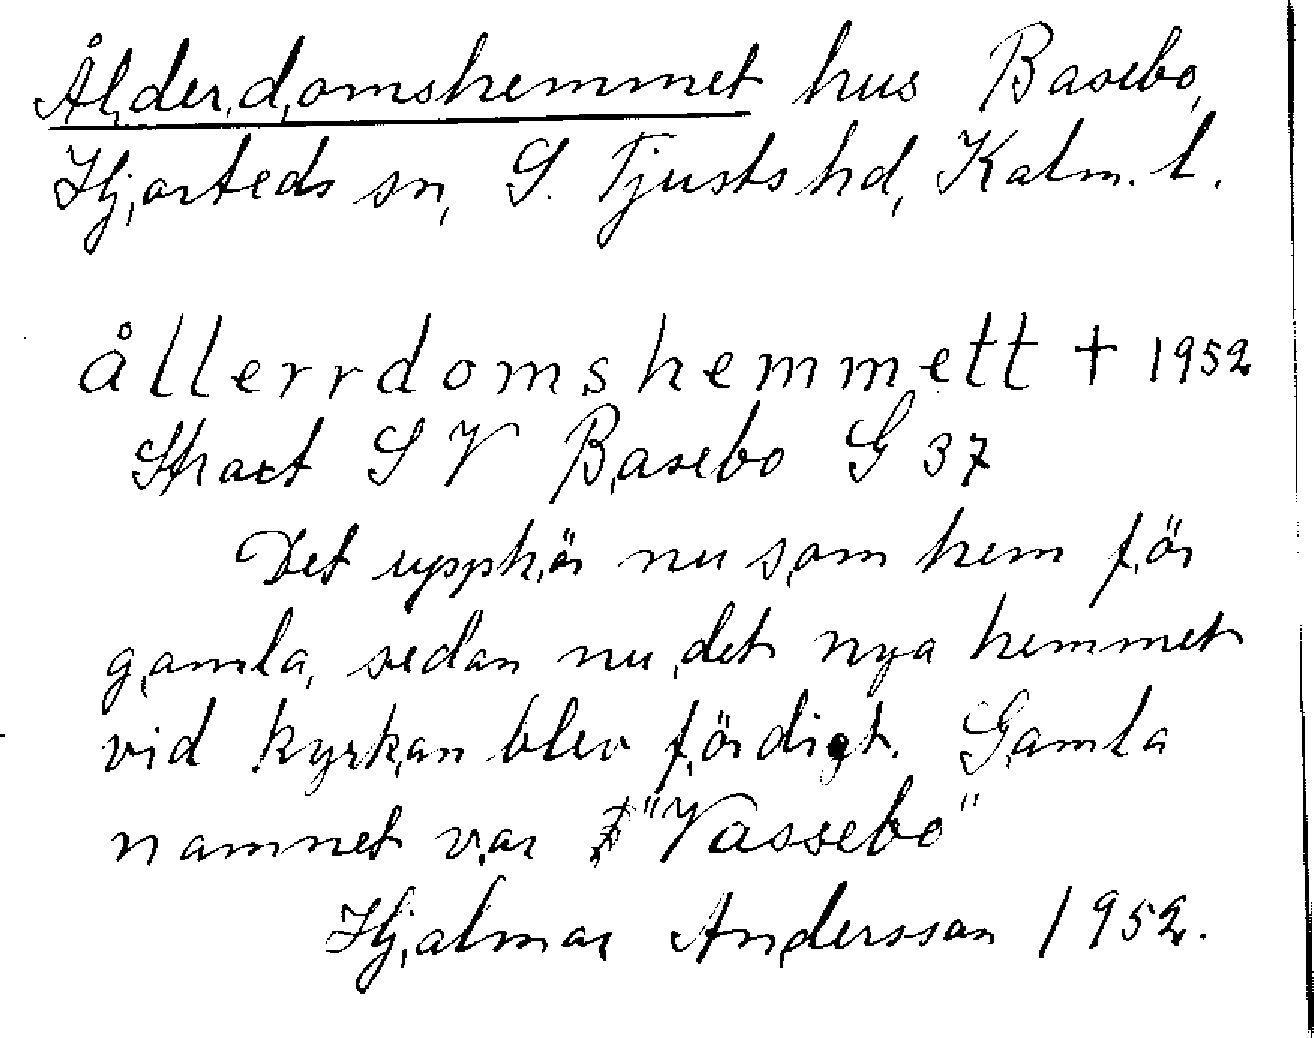 Ålderdomshemmet hus Basebo,
Hjorteds sn, S. Tjusts hd, Kalm. l.
ållerrdomshemmett † 1952
Strax S V Basebo G 37
Det upphör nu som hem för
gamla, sedan nu det nya hemmet
vid kyrkan blev färdigt. Gamla
namnet var "Vassebo"
Hjalmar Andersson 1952.